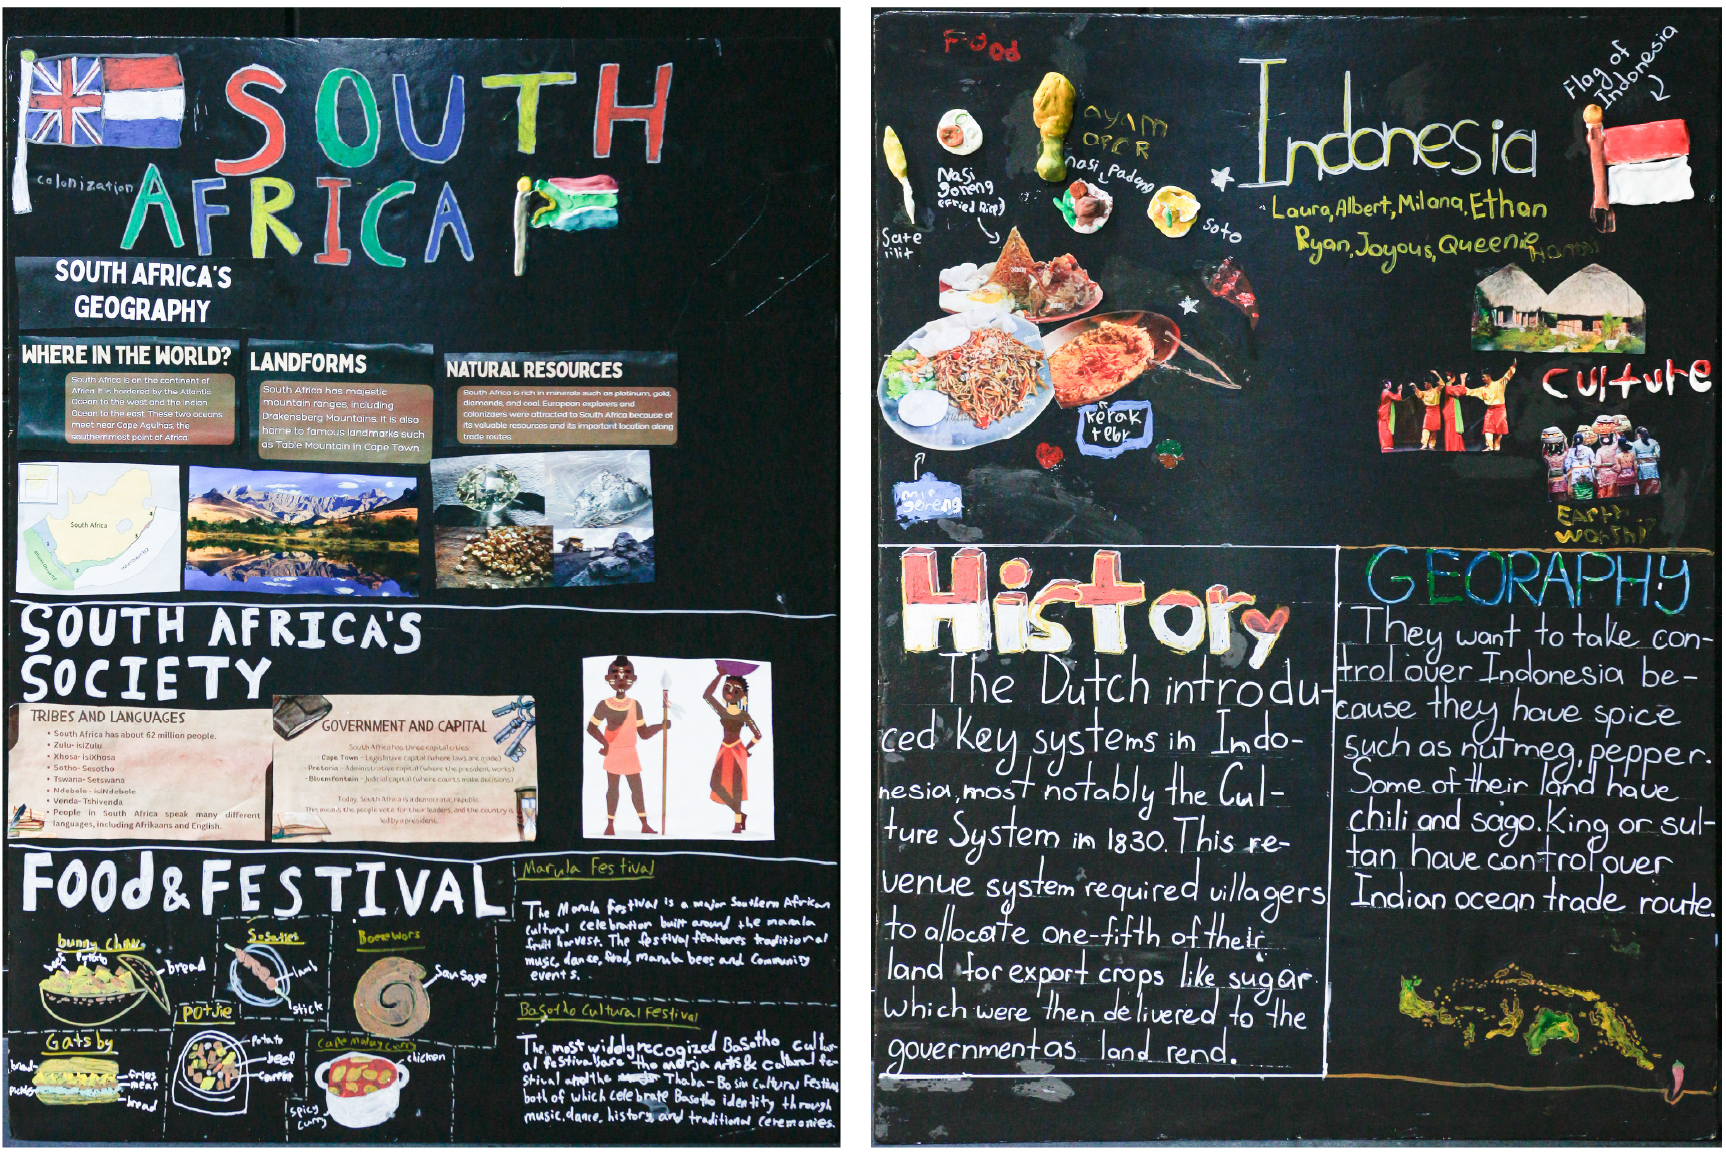 colonization
SOUTH
AFRICA
SOUTH AFRICA'S
GEOGRAPHY
WHERE IN THE WORLD?
South Africa is on the continent of
Africa. It is bordered by the Atlantic
Ocean to the west and the Indian
Ocean to the east. These two oceans
meet near Cape Agulhas, the
southernmost point of Africa.
LANDFORMS
South Africa has majestic
mountain ranges, including
Drakensberg Mountains. It is also
home to famous landmarks such
as Table Mountain in Cape Town.
NATURAL RESOURCES
South Africa is rich in minerals such as platinum, gold,
diamonds, and coal. European explorers and
colonizers were attracted to South Africa because of
its valuable resources and its important location along
trade routes.
South Africa
SOUTH AFRICA'S
SOCIETY
TRIBES AND LANGUAGES
• South Africa has about 62 million people.
• Zulu- isiZulu
• Xhosa- isiXhosa
• Sotho- Sesotho
• Tswana- Setswana
• Ndebele - isiNdebele
• Venda- Tshivenda
• People in South Africa speak many different
languages, including Afrikaans and English.
GOVERNMENT AND CAPITAL
South Africa has three capital cities:
- Cape Town - Legislative capital (where laws are made)
- Pretoria - Administrative capital (where the president works)
- Bloemfontein - Judicial capital (where courts make decisions)
Today, South Africa is a democratic republic.
This means the people vote for their leaders, and the country is
led by a president.
FOOd & FESTIVAL
bunny chow
beef
Potato
bread
Sosaties
lamb
stick
Boerewors
Sausage
Gatsby
bread
fries
meat
pickles
bread
Potjie
potato
beef
carrot
Cape malay curry
chicken
spicy
curry
Marula Festival
The Marula Festival is a major Southern African
cultural celebration built around the marula
fruit harvest. The festival features traditional
music, dance, food, marula beer and Community
events.
Basotho Cultural Festival
The most widely recogized Basotho cultur-
al festivals are the morja arts & cultural fe-
stival and the Thaba-Bosiu Cultural Festival
both of which celebrate Basotho identity through
music, dance, history, and traditional ceremonies.
Food
AYAM
OPOR
Nasi
goreng
(Fried Rice)
nasi Padang
Soto
Sate
lilit
kerak
telor
mie
goreng
Indonesia
Flag of
Indonesia
Laura, Albert, Milana, Ethan
Ryan, Joyous, Queenie
Culture
EARTH
WORSHIP
History
The Dutch introdu-
ced key systems in Indo-
nesia, most notably the Cul-
ture System in 1830. This re-
venue system required villagers
to allocate one-fifth of their
land for export crops like sugar
which were then delivered to the
government as land rend.
GEORAPHY
They want to take con-
trol over Indonesia be-
cause they have spice
such as nutmeg, pepper.
Some of their land have
chili and sago. King or sul-
tan have control over
Indian ocean trade route.